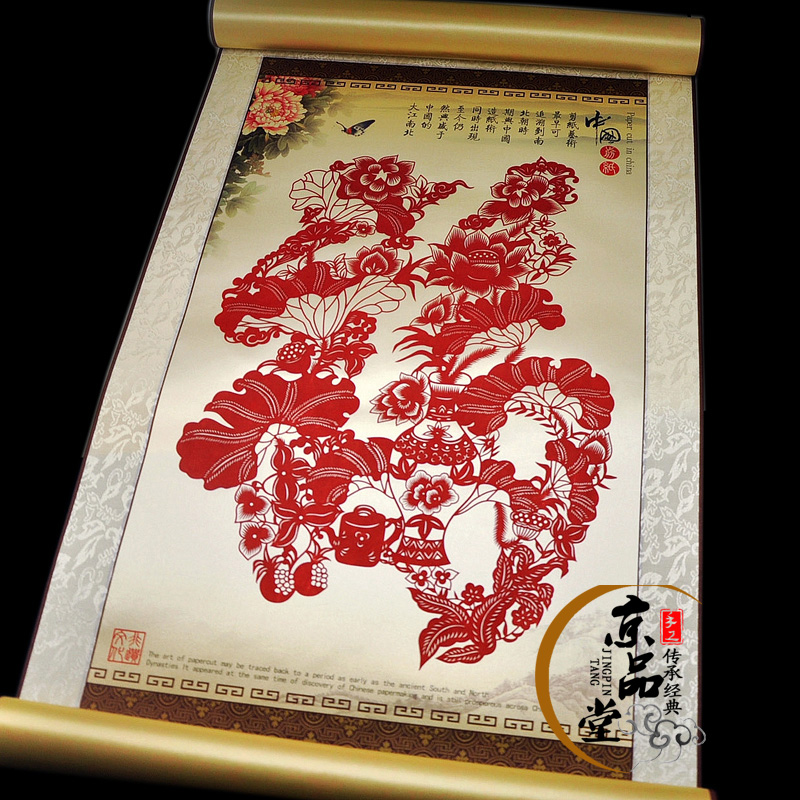 Paper cut in china
中國
剪紙
剪紙藝術
最早可
追溯到南
北朝時
期與中國
造紙術
同時出現
至今仍
然興盛于
中國的
大江南北
文化
The art of papercut may be traced back to a period as early as the ancient South and North
Dynasties It appeared at the same time of discovery of Chinese papermaking and is still prosperous across Ch
京品堂
JINGPIN
TANG
手工
传承经典